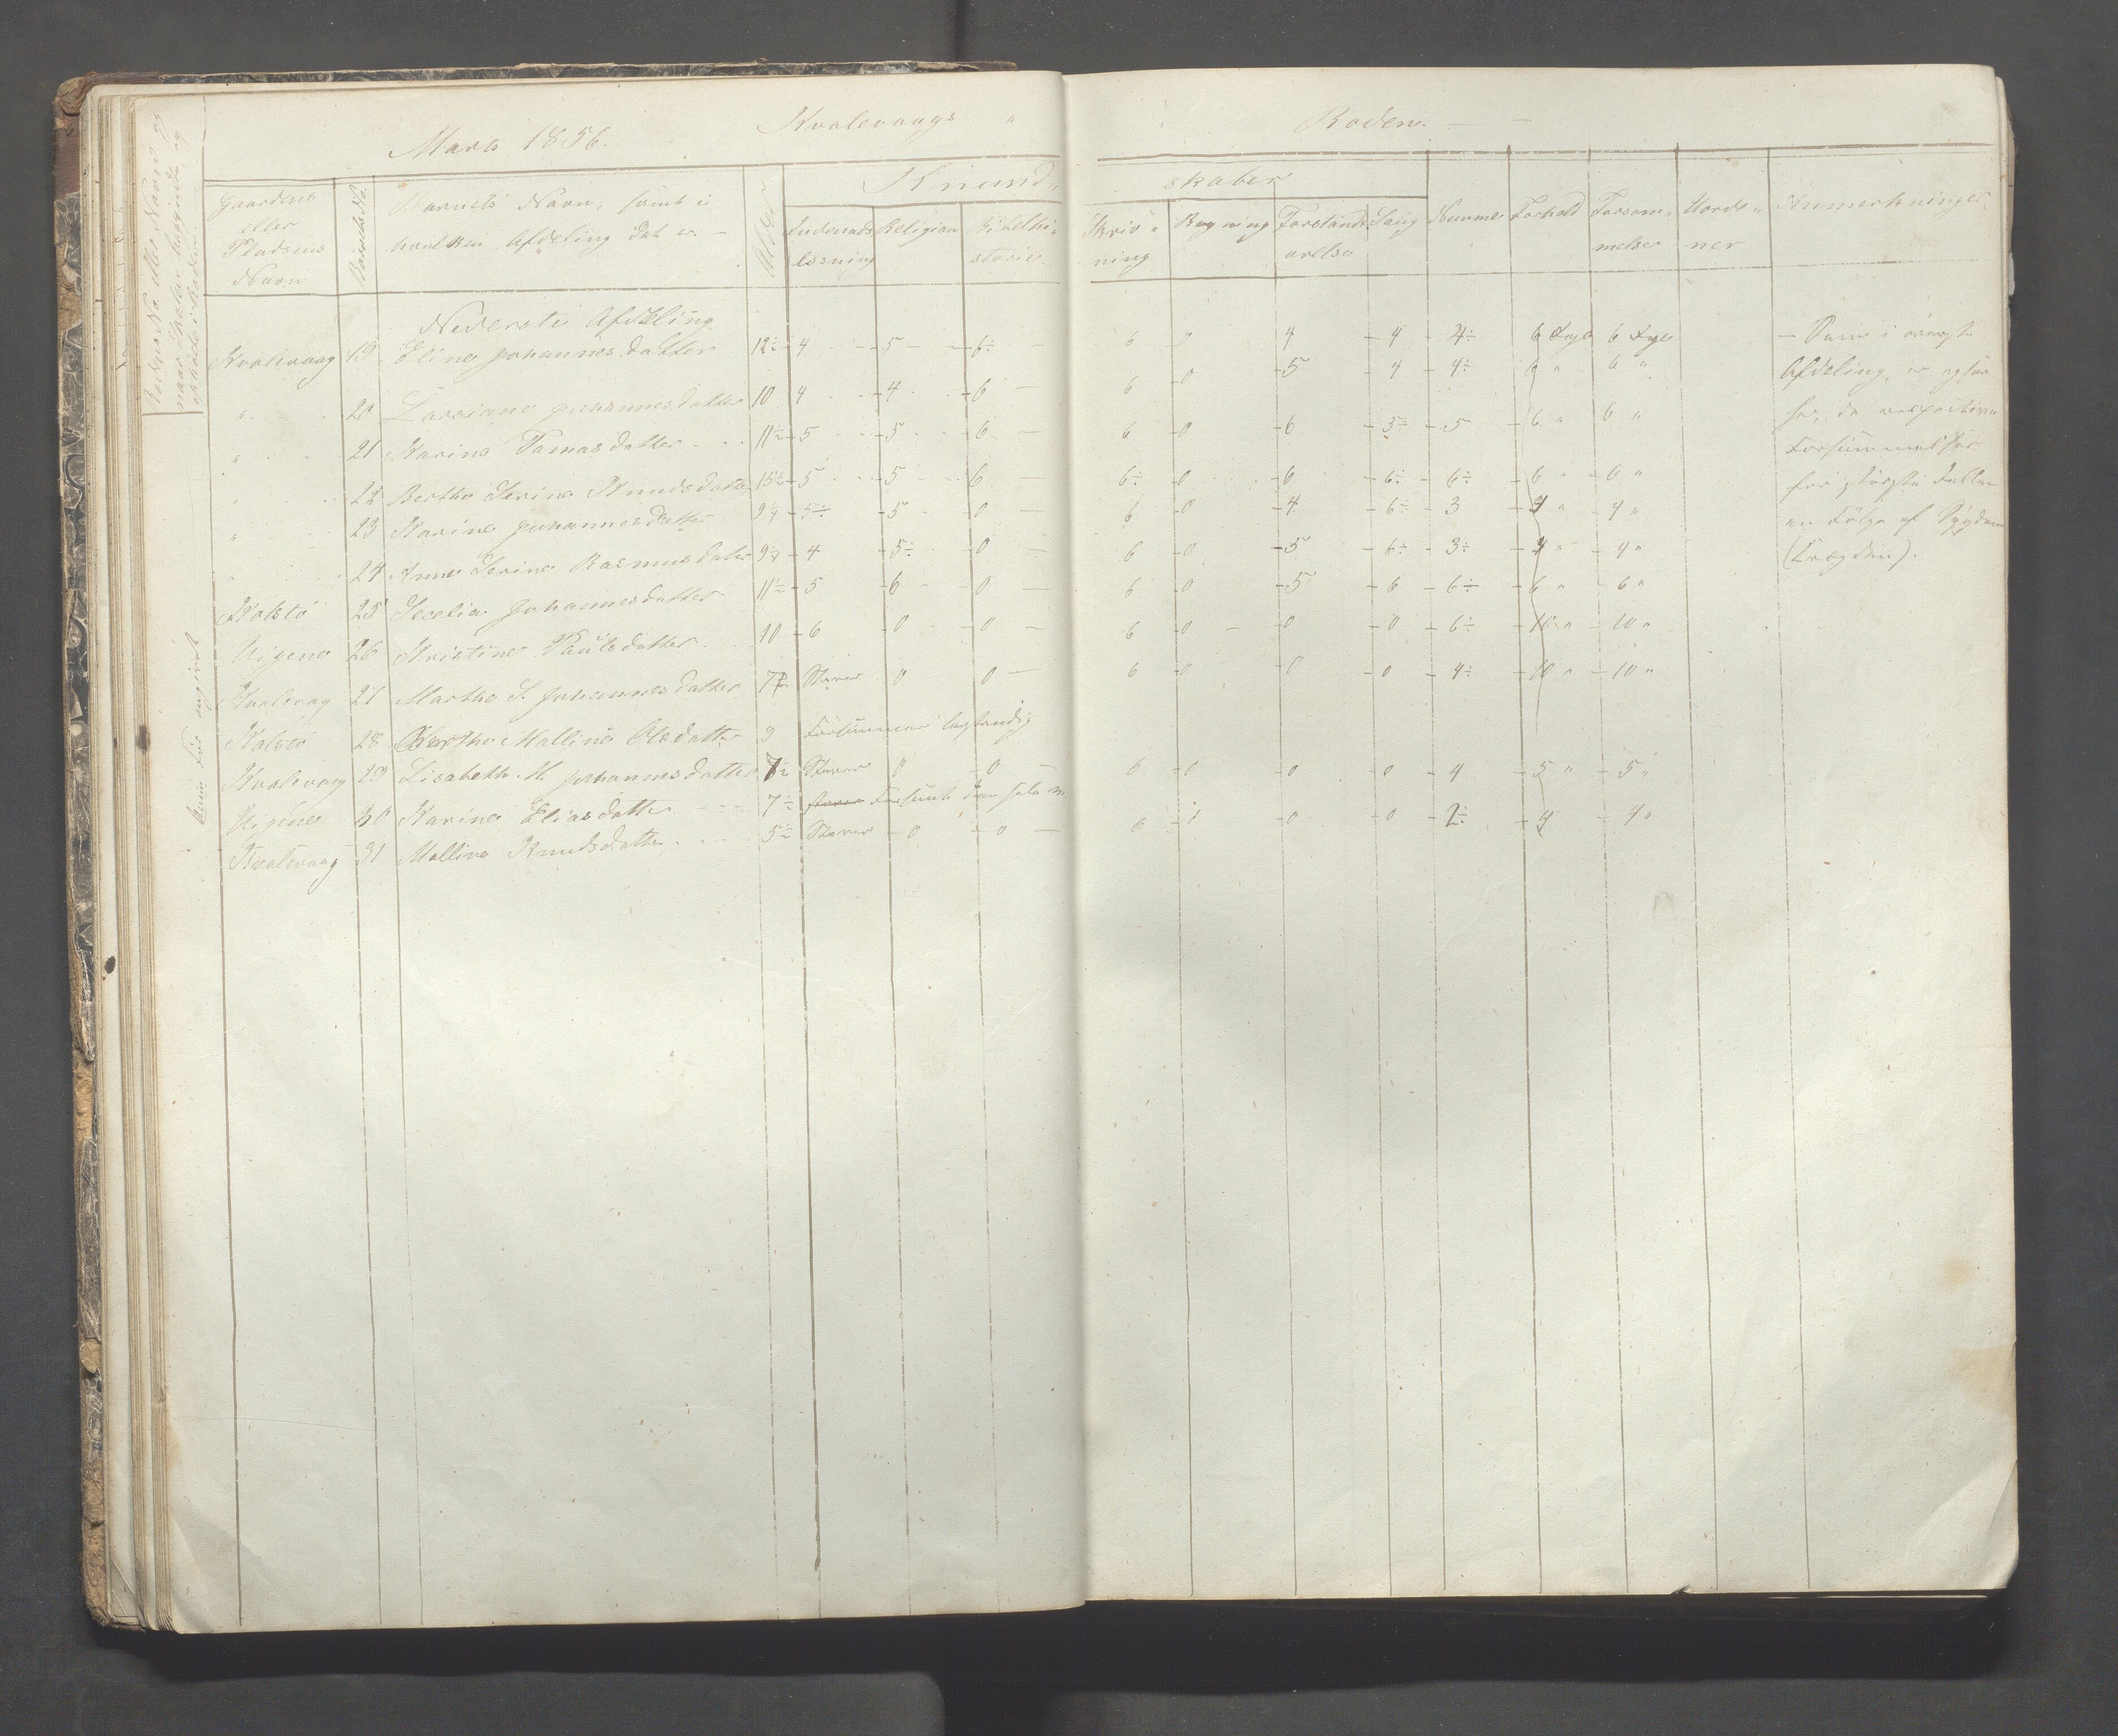 Marts 1856. Kvalevaags " Roden.
Rodens No. eller Navn og
naar Skolen begyndte og
opholdes i Roden.
Gaardens eller Pladsens Navn | Barnets No. | Barnets Navn, samt i hvilken Afdeling det er. | Alder | Kundskaber
Indenadslæsning | Religion | Bibelhistorie | Skrivning | Regning | Forstandsøvelse | Sang | Nemme | Forhold | Forsømmelse | Uordener | Anmerkninger.
Nederste Afdeling
Kvalevaag 19 Eline Johannesdatter 12÷ 4 - 5 - 6÷ - 6 - 0 4 - 4 - 4÷ 6 Dge 6 Dge
" 20 Larsiane Johannesdatter 10 4 - 4 - 6 - 6 - 0 - 5 - 4 - 4÷ 6 " 6 "
" 21 Karine Tamasdatter 11½ - 5 - 5 - 6 - 6 - 0 - 6 - 5÷ - 5 - 6 " 6 "
" 22 Berthe Serine Knudsdatter 13½ - 5 - 5 - 6 - 6÷ - 0 - 6 - 6÷ - 6÷ - 6 " - 6 "
" 23 Karine Johannesdatter 9¼ - 5÷ - 5 - 0 - 6 - 0 - 4 - 6÷ - 3 - 4 " - 4 "
" 24 Anne Serine Rasmusdatter 9¼ - 4 - 5÷ - 0 - 6 - 0 - 5 - 6÷ - 3÷ - 4 " - 4 "
Kolstö 25 Secelia Johannesdatter 11½ - 5 - 6 - 0 - 6 - 0 - 5 - 6 - 6÷ - 6 " - 6 "
Vigene 26 Kristine Paulsdatter 10 - 6 - 0 - 0 - 6 - 0 - 0 - 0 - 6÷ - 10 " - 10 "
Kvalevag 27 Marthe S. Johannesdatter 7½ Staver 0 0 - 6 - 0 - 0 - 0 - 4÷ - 10 " - 10 "
Kolstö 28 Berthe Malline Olsdatter 9 Forsümmer
Kvalevaag 29 Lisabeth M. Johannesdatter 7½ Staver 0 - 0 - 6 - 0 - 0 - 0 - 4 - 5 " - 5 "
Vigene 30 Karine Eliasdatter 7½ Forsümt den hele
Kvalevaag 31 Malline Knudsdatter 5½ Staver - 0 - 0 - 6 - 0 - 0 - 0 - 2÷ - 4 - 4 "
- Som i øverste
Afdeling, er ogsaa
her, de respective
Forsümmelser
for störste Delen
en Fölge af Sygdom